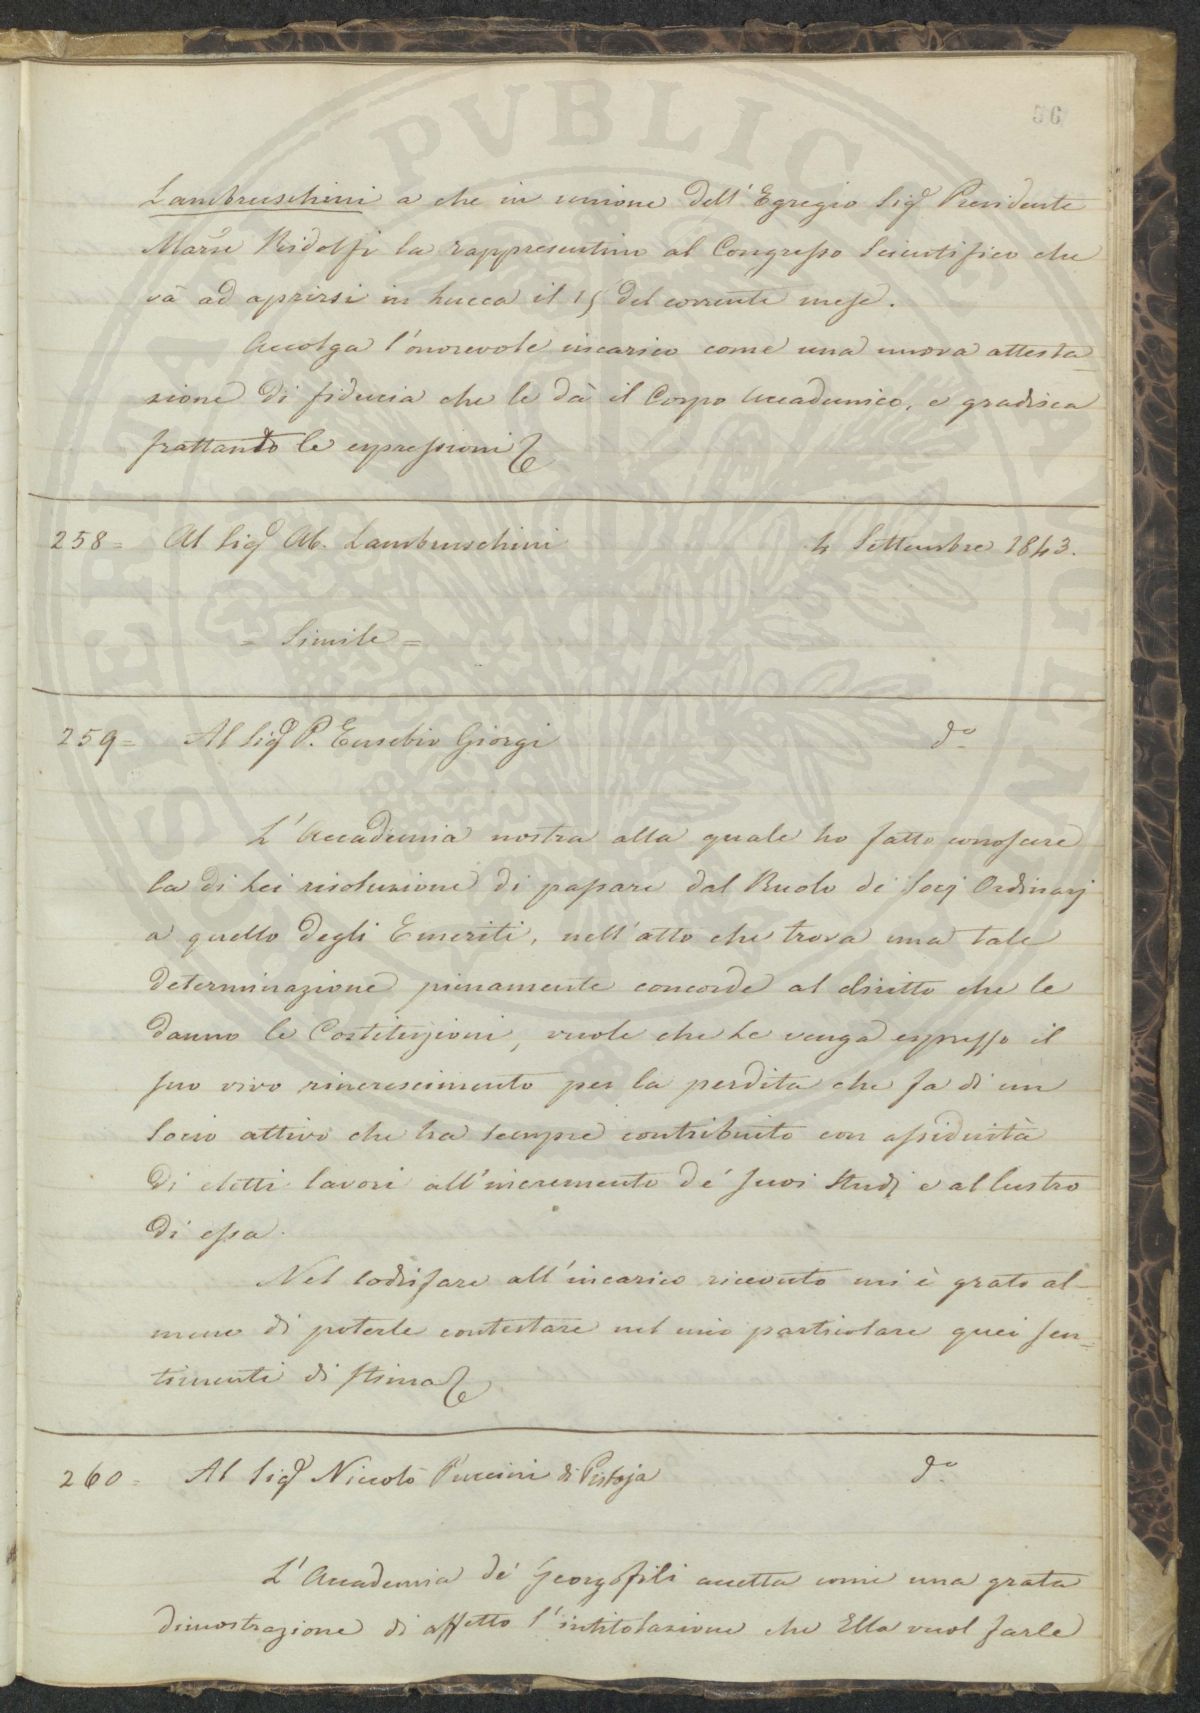 56
Lambruschini a che in unione dell'Egregio Sigr Presidente
Marse Ridolfi la rappresentino al Congresso Scientifico che
và ad aprirsi in Lucca il 15 del corrente mese.
Accolga l'onorevole incarico come una nuova attesta
zione di fiducia che le dà il Corpo Accademico, e gradisca
frattanto le espressioni
258= Al Sigr Ab. Lambruschini 4 Settembre 1843.
= Simile =
259= Al Sigr P. Eusebio Giorgi do
L'Accademia nostra alla quale ho fatto conoscere
la di Lei risoluzione di passare dal Ruolo de' Socj Ordinarj
a quello degli Emeriti, nell'atto che trova una tale
determinazione pienamente concorde al diritto che le
danno le Costituzioni, vuole che Le venga espresso il
suo vivo rincrescimento per la perdita che fa di un
Socio attivo che ha sempre contribuito con assiduità
di eletti lavori all'incremento de' suoi Studj e al lustro
di essa.
Nel sodisfare all'incarico ricevuto mi è grato al=
meno di poterle contestare nel mio particolare quei sen=
timenti di stima
260= Al Sigr Niccolò Puccini di Pistoja do
L'Accademia de' Georgofili accetta come una grata
dimostrazione di affetto l'intitolazione che Ella vuol farle
PVBLICAE